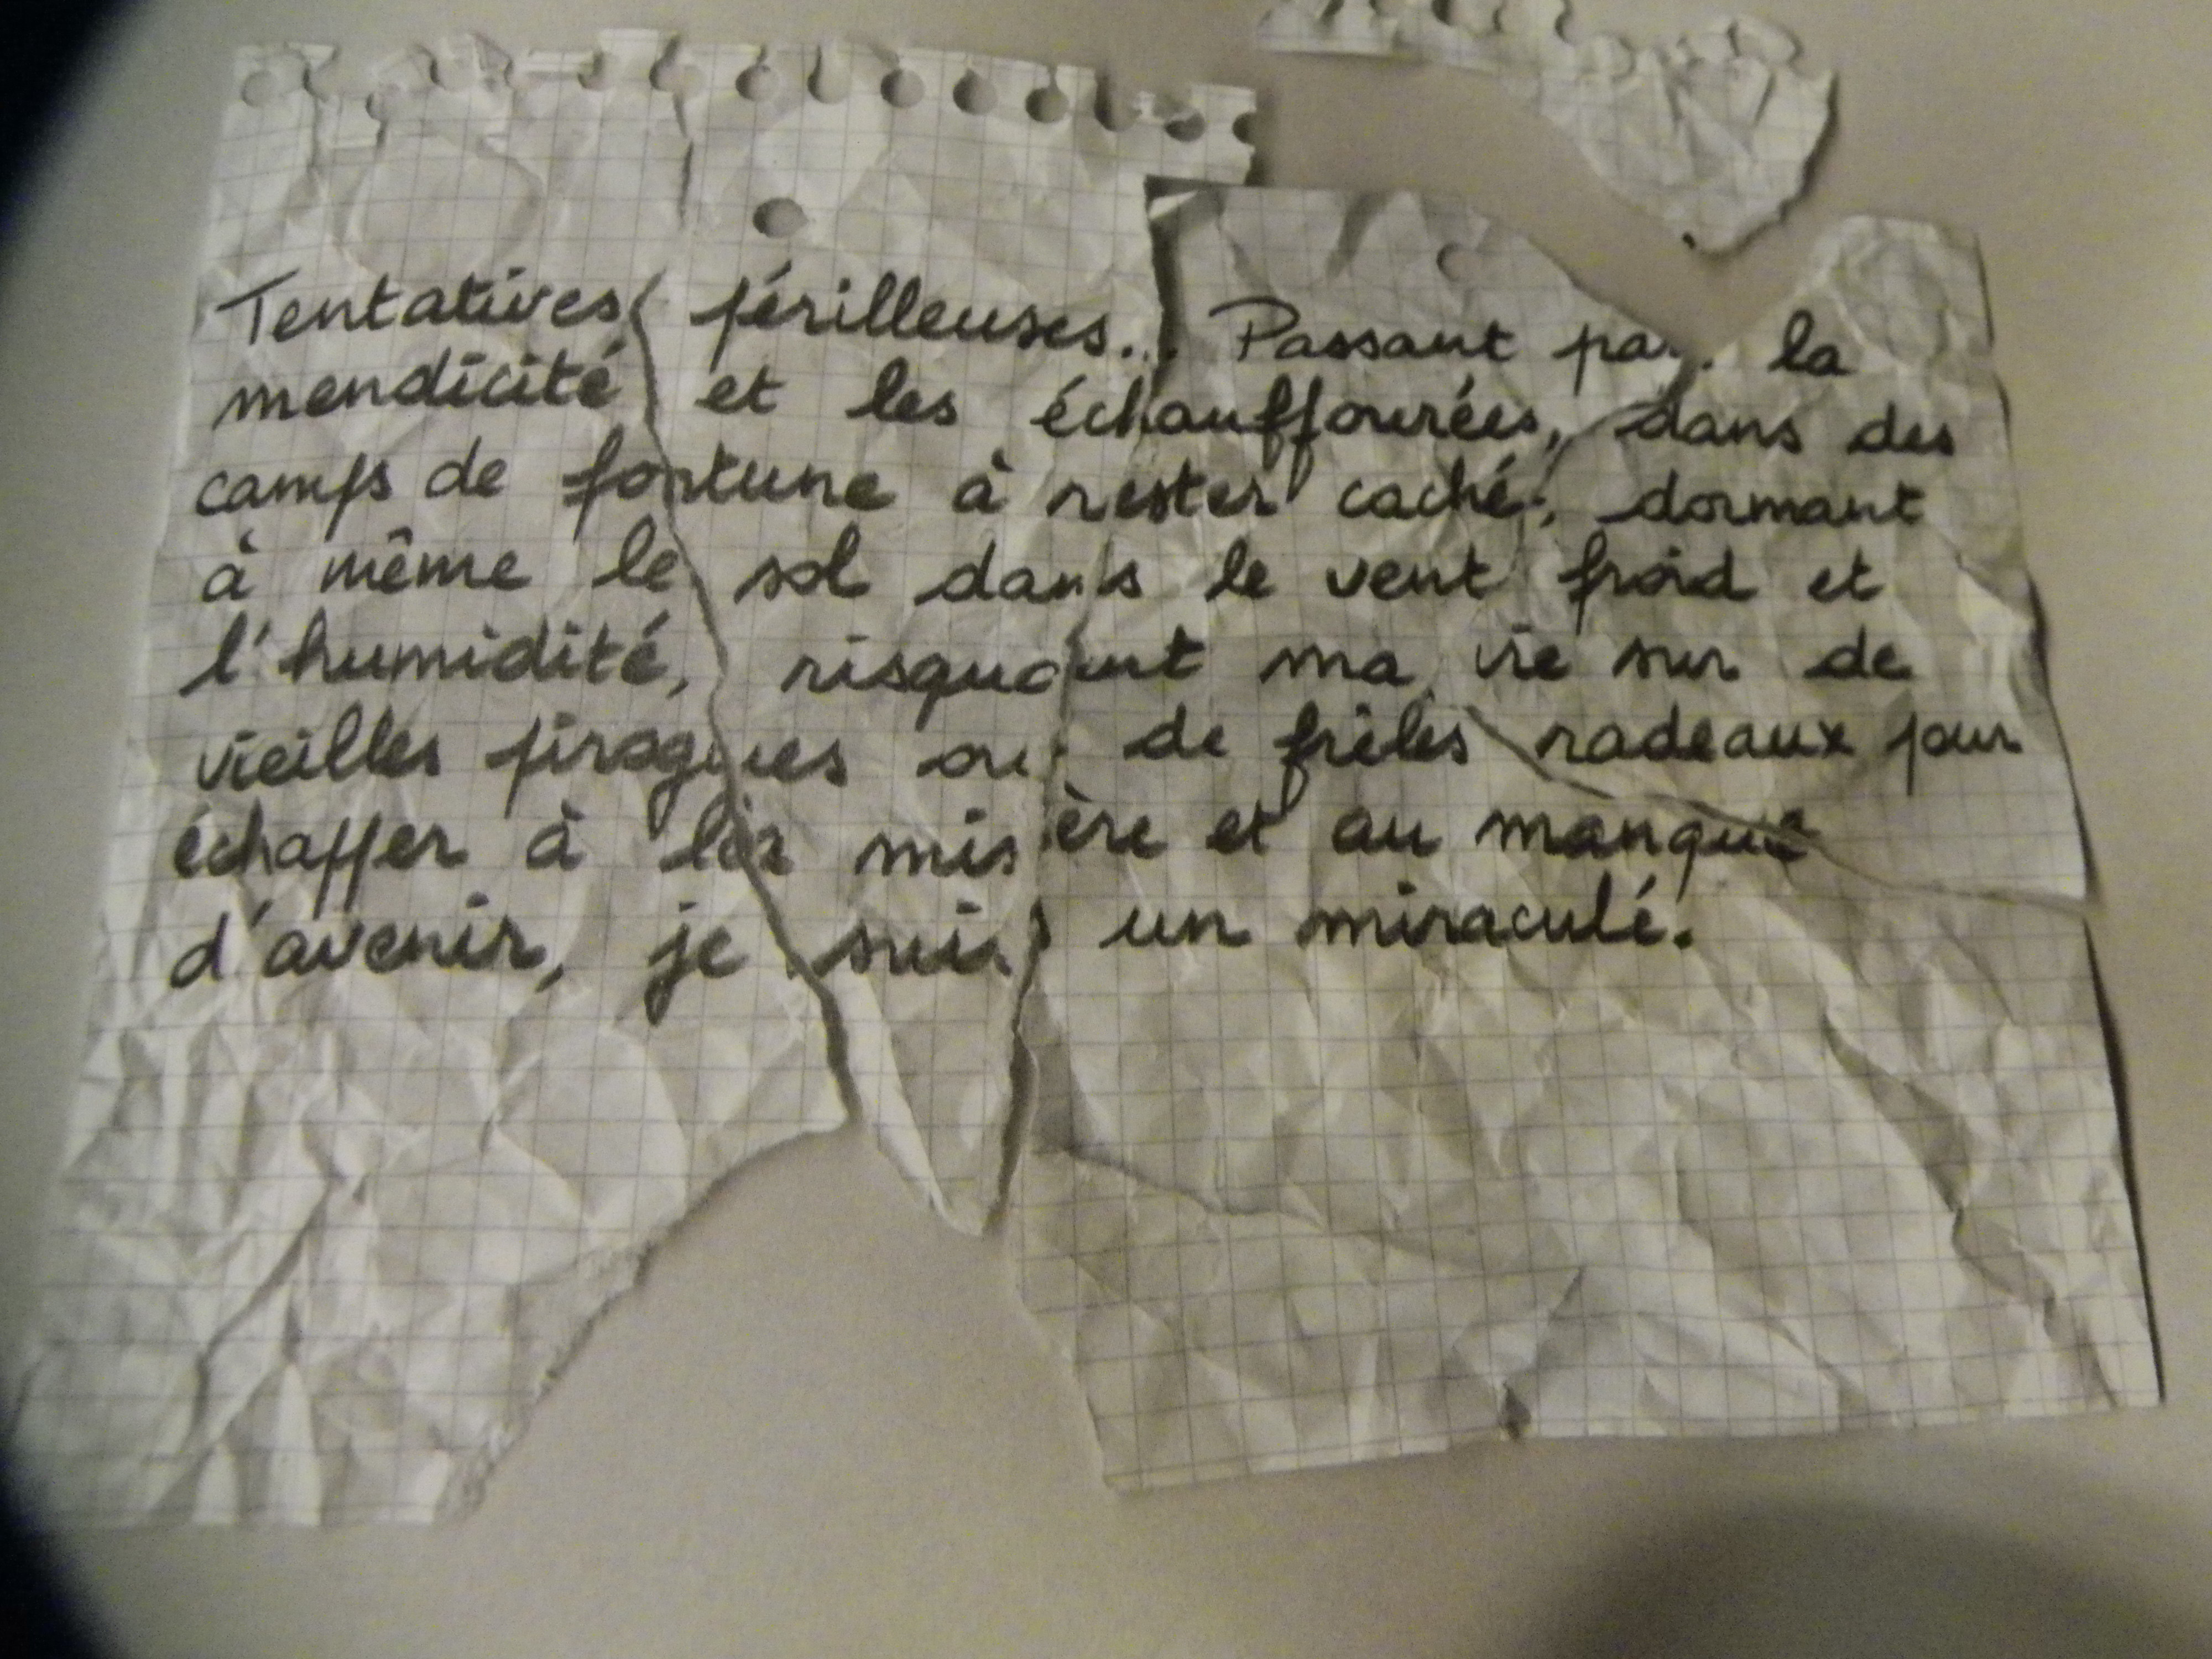 Tentatives périlleuses... Passant par la
mendicité et les échauffourées, dans des
camps de fortune à rester caché, dormant
à même le sol dans le vent froid et
l'humidité, risquant ma vie sur de
vieilles pirogues ou de frêles radeaux pour
échapper à la misère et au manque
d'avenir, je suis un miraculé.